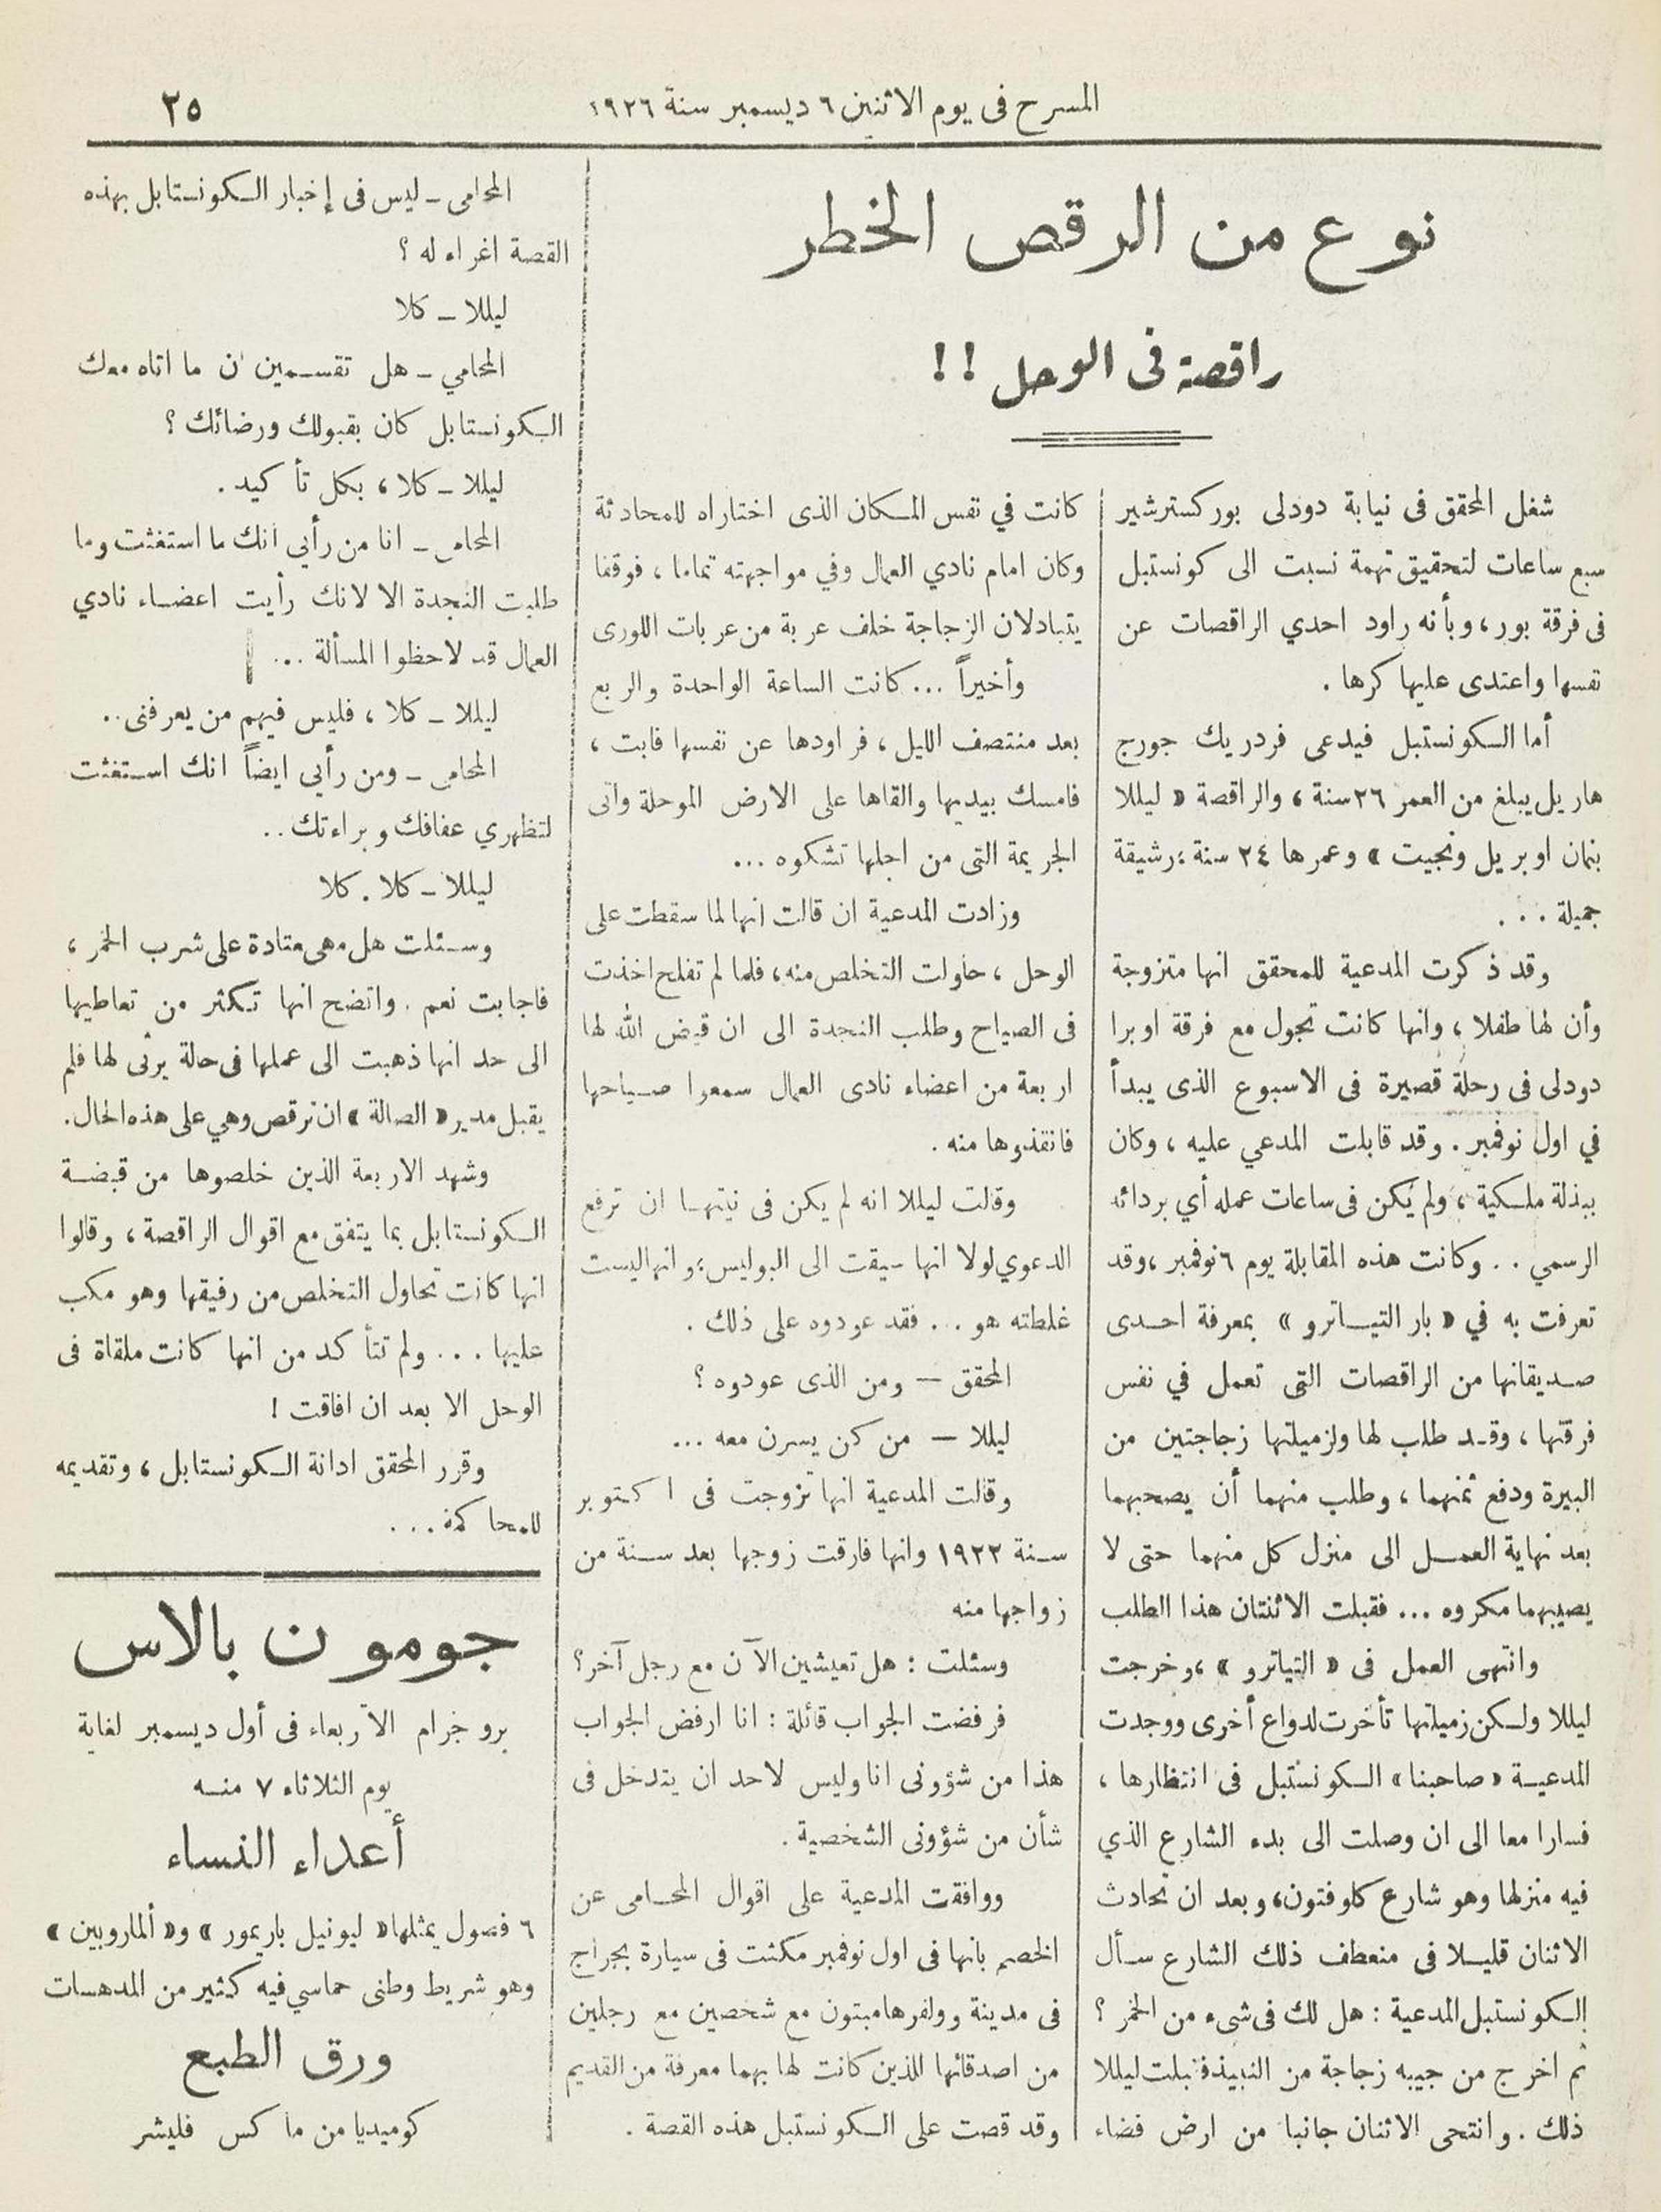 المسرح فى يوم الاثنين ٦ ديسمبر سنة ١٩٢٦
٢٥
نوع من الرقص الخطر
راقصة فى الوحل !!
شغل المحقق فى نيابة دودلى بوركسترشير
سبع ساعات لتحقيق تهمة نسبت الى كونستبل
فى فرقة بور، وبأنه راود احدي الراقصات عن
نفسها واعتدى عليها كرها .
أما الكونستبل فيدعى فردريك جورج
هاريل يبلغ من العمر ٢٦ سنة ، والراقصة « ليللا
بنمان اوبريل ونجيت » وعمرها ٢٤ سنة ؛ رشيقة
جميلة . . .
وقد ذكرت المدعية للمحقق انها متزوجة
وأن لها طفلا ، وانها كانت تجول مع فرقة اوبرا
دودلى فى رحلة قصيرة فى الاسبوع الذى يبدأ
في اول نوفمبر . وقد قابلت المدعي عليه ، وكان
ببذلة ملكية ، ولم يكن فى ساعات عمله أي بردائه
الرسمي . . وكانت هذه المقابلة يوم ٦ نوفمبر ، وقد
تعرفت به في « بار التياترو » بمعرفة احدى
صديقاتها من الراقصات التى تعمل في نفس
فرقتها ، وقد طلب لها ولزميلتها زجاجتين من
البيرة ودفع ثمنهما ، وطلب منهما أن يصحبهما
بعد نهاية العمل الى منزل كل منهما حتى لا
يصيبهما مكروه ... فقبلت الاثنتان هذا الطلب
وانتهى العمل فى « التياترو » ، وخرجت
ليللا ولكن زميلتها تأخرت لدواع أخرى ووجدت
المدعية « صاحبنا » الكونستبل فى انتظارها ،
فسارا معا الى ان وصلت الى بدء الشارع الذي
فيه منزلها وهو شارع كلوفتون، وبعد ان تحادث
الاثنان قليلا فى منعطف ذلك الشارع سأل
الكونستبل المدعية : هل لك فى شىء من الخمر ؟
ثم اخرج من جيبه زجاجة من النبيذ فقبلت ليللا
ذلك . وانتحى الاثنان جانبا من ارض فضاء
كانت في نفس المكان الذى اختاراه للمحادثة
وكان امام نادي العمال وفي مواجهته تماما ، فوقفا
يتبادلان الزجاجة خلف عربة من عربات اللورى
وأخيراً ... كانت الساعة الواحدة والربع
بعد منتصف الليل ، فراودها عن نفسها فابت ،
فامسك بيديها والقاها على الارض الموحلة واتى
الجريمة التى من اجلها تشكوه ...
وزادت المدعية ان قالت انها لما سقطت على
الوحل ، حاولت التخلص منه ، فلما لم تفلح اخذت
فى الصياح وطلب النجدة الى ان قيض الله لها
اربعة من اعضاء نادى العمال سمعوا صياحها
فانقذوها منه .
وقالت ليللا انه لم يكن فى نيتها ان ترفع
الدعوي لولا انها سيقت الى البوليس ؛ وانها ليست
غلطته هو . . . فقد عودوه على ذلك .
المحقق — ومن الذى عودوه ؟
ليللا — من كن يسرن معه ...
وقالت المدعية انها تزوجت فى اكتوبر
سنة ١٩٢٢ وانها فارقت زوجها بعد سنة من
زواجها منه
وسئلت : هل تعيشين الآن مع رجل آخر ؟
فرفضت الجواب قائلة : انا ارفض الجواب
هذا من شؤونى انا وليس لاحد ان يتدخل فى
شأن من شؤونى الشخصية .
ووافقت المدعية على اقوال المحامى عن
الخصم بانها فى اول نوفمبر مكثت فى سيارة بجراج
فى مدينة وولفرهامبتون مع شخصين مع رجلين
من اصدقائها الذين كانت لها بهما معرفة من القديم
وقد قصت على الكونستبل هذه القصة .
المحامى ـ ليس فى إخبار الكونستابل بهذه
القصة اغراء له ؟
ليللا ـ كلا
المحامي ـ هل تقسمين ان ما اتاه معك
الكونستابل كان بقبولك ورضائك ؟
ليللا ـ كلا ، بكل تأكيد .
المحامى ـ انا من رأيي انك ما استغثت وما
طلبت النجدة الا لانك رأيت اعضاء نادي
العمال قد لاحظوا المسألة ...
ليللا ـ كلا ، فليس فيهم من يعرفنى ..
المحامى ـ ومن رأيي ايضاً انك استغثت
لتظهري عفافك وبراءتك ..
ليللا ـ كلا . كلا
وسئلت هل هى معتادة على شرب الخمر ،
فاجابت نعم . واتضح انها تكثر من تعاطيها
الى حد انها ذهبت الى عملها فى حالة يرثى لها فلم
يقبل مدير « الصالة » ان ترقص وهي على هذه الحال .
وشهد الاربعة الذين خلصوها من قبضة
الكونستابل بما يتفق مع اقوال الراقصة ، وقالوا
انها كانت تحاول التخلص من رفيقها وهو مكب
عليها . . . ولم تتأكد من انها كانت ملقاة فى
الوحل الا بعد ان افاقت !
وقرر المحقق ادانة الكونستابل ، وتقديمه
للمحاكمة . . .
جومون بالاس
بروجرام الأربعاء فى أول ديسمبر لغاية
يوم الثلاثاء ٧ منه
أعداء النساء
٦ فصول يمثلها « ليونيل باريمور » و« ألماروبين »
وهو شريط وطنى حماسي فيه كثير من المدهسات
ورق الطبع
كوميديا من ماكس فليشر